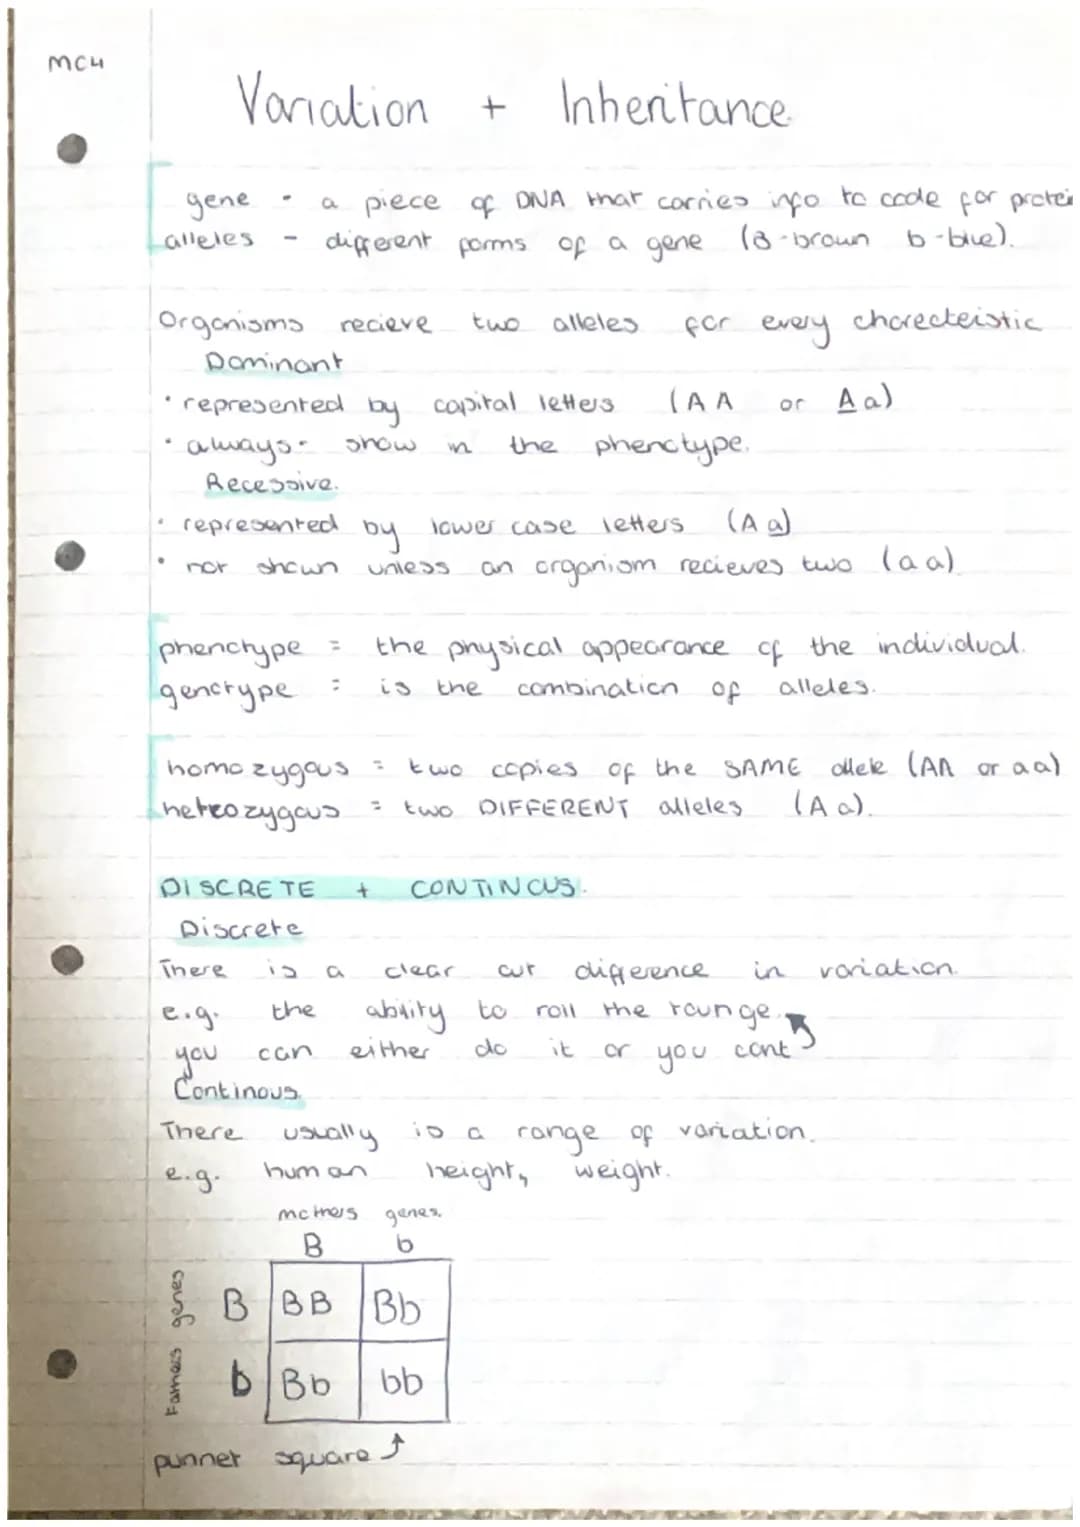 MC4
Variation + Inheritance.
gene - a piece of DNA that carries info to code for protei
alleles - different forms of a gene (B-brown b-blue).
Organisms recieve two alleles for every charecteistic
Dominant
• represented by capital letters (AA or Aa)
• always - show in the phenotype.
Recessive.
• represented by lower case letters (Aa)
• not shown unless an organism recieves two (aa)
phenotype = the physical appearance of the individual.
genotype = is the combination of alleles.
homozygous = two copies of the SAME allele (AA or aa)
hetrozygous = two DIFFERENT alleles (Aa).
DISCRETE + CONTINOUS.
Discrete
There is a clear cut difference in variation.
e.g. the ability to roll the tounge.
you can either do it or you cant
Continous.
There usually is a range of variation.
e.g. human height, weight.
mothers genes.
B b
Fathers genes
B BB Bb
b Bb bb
punnet square